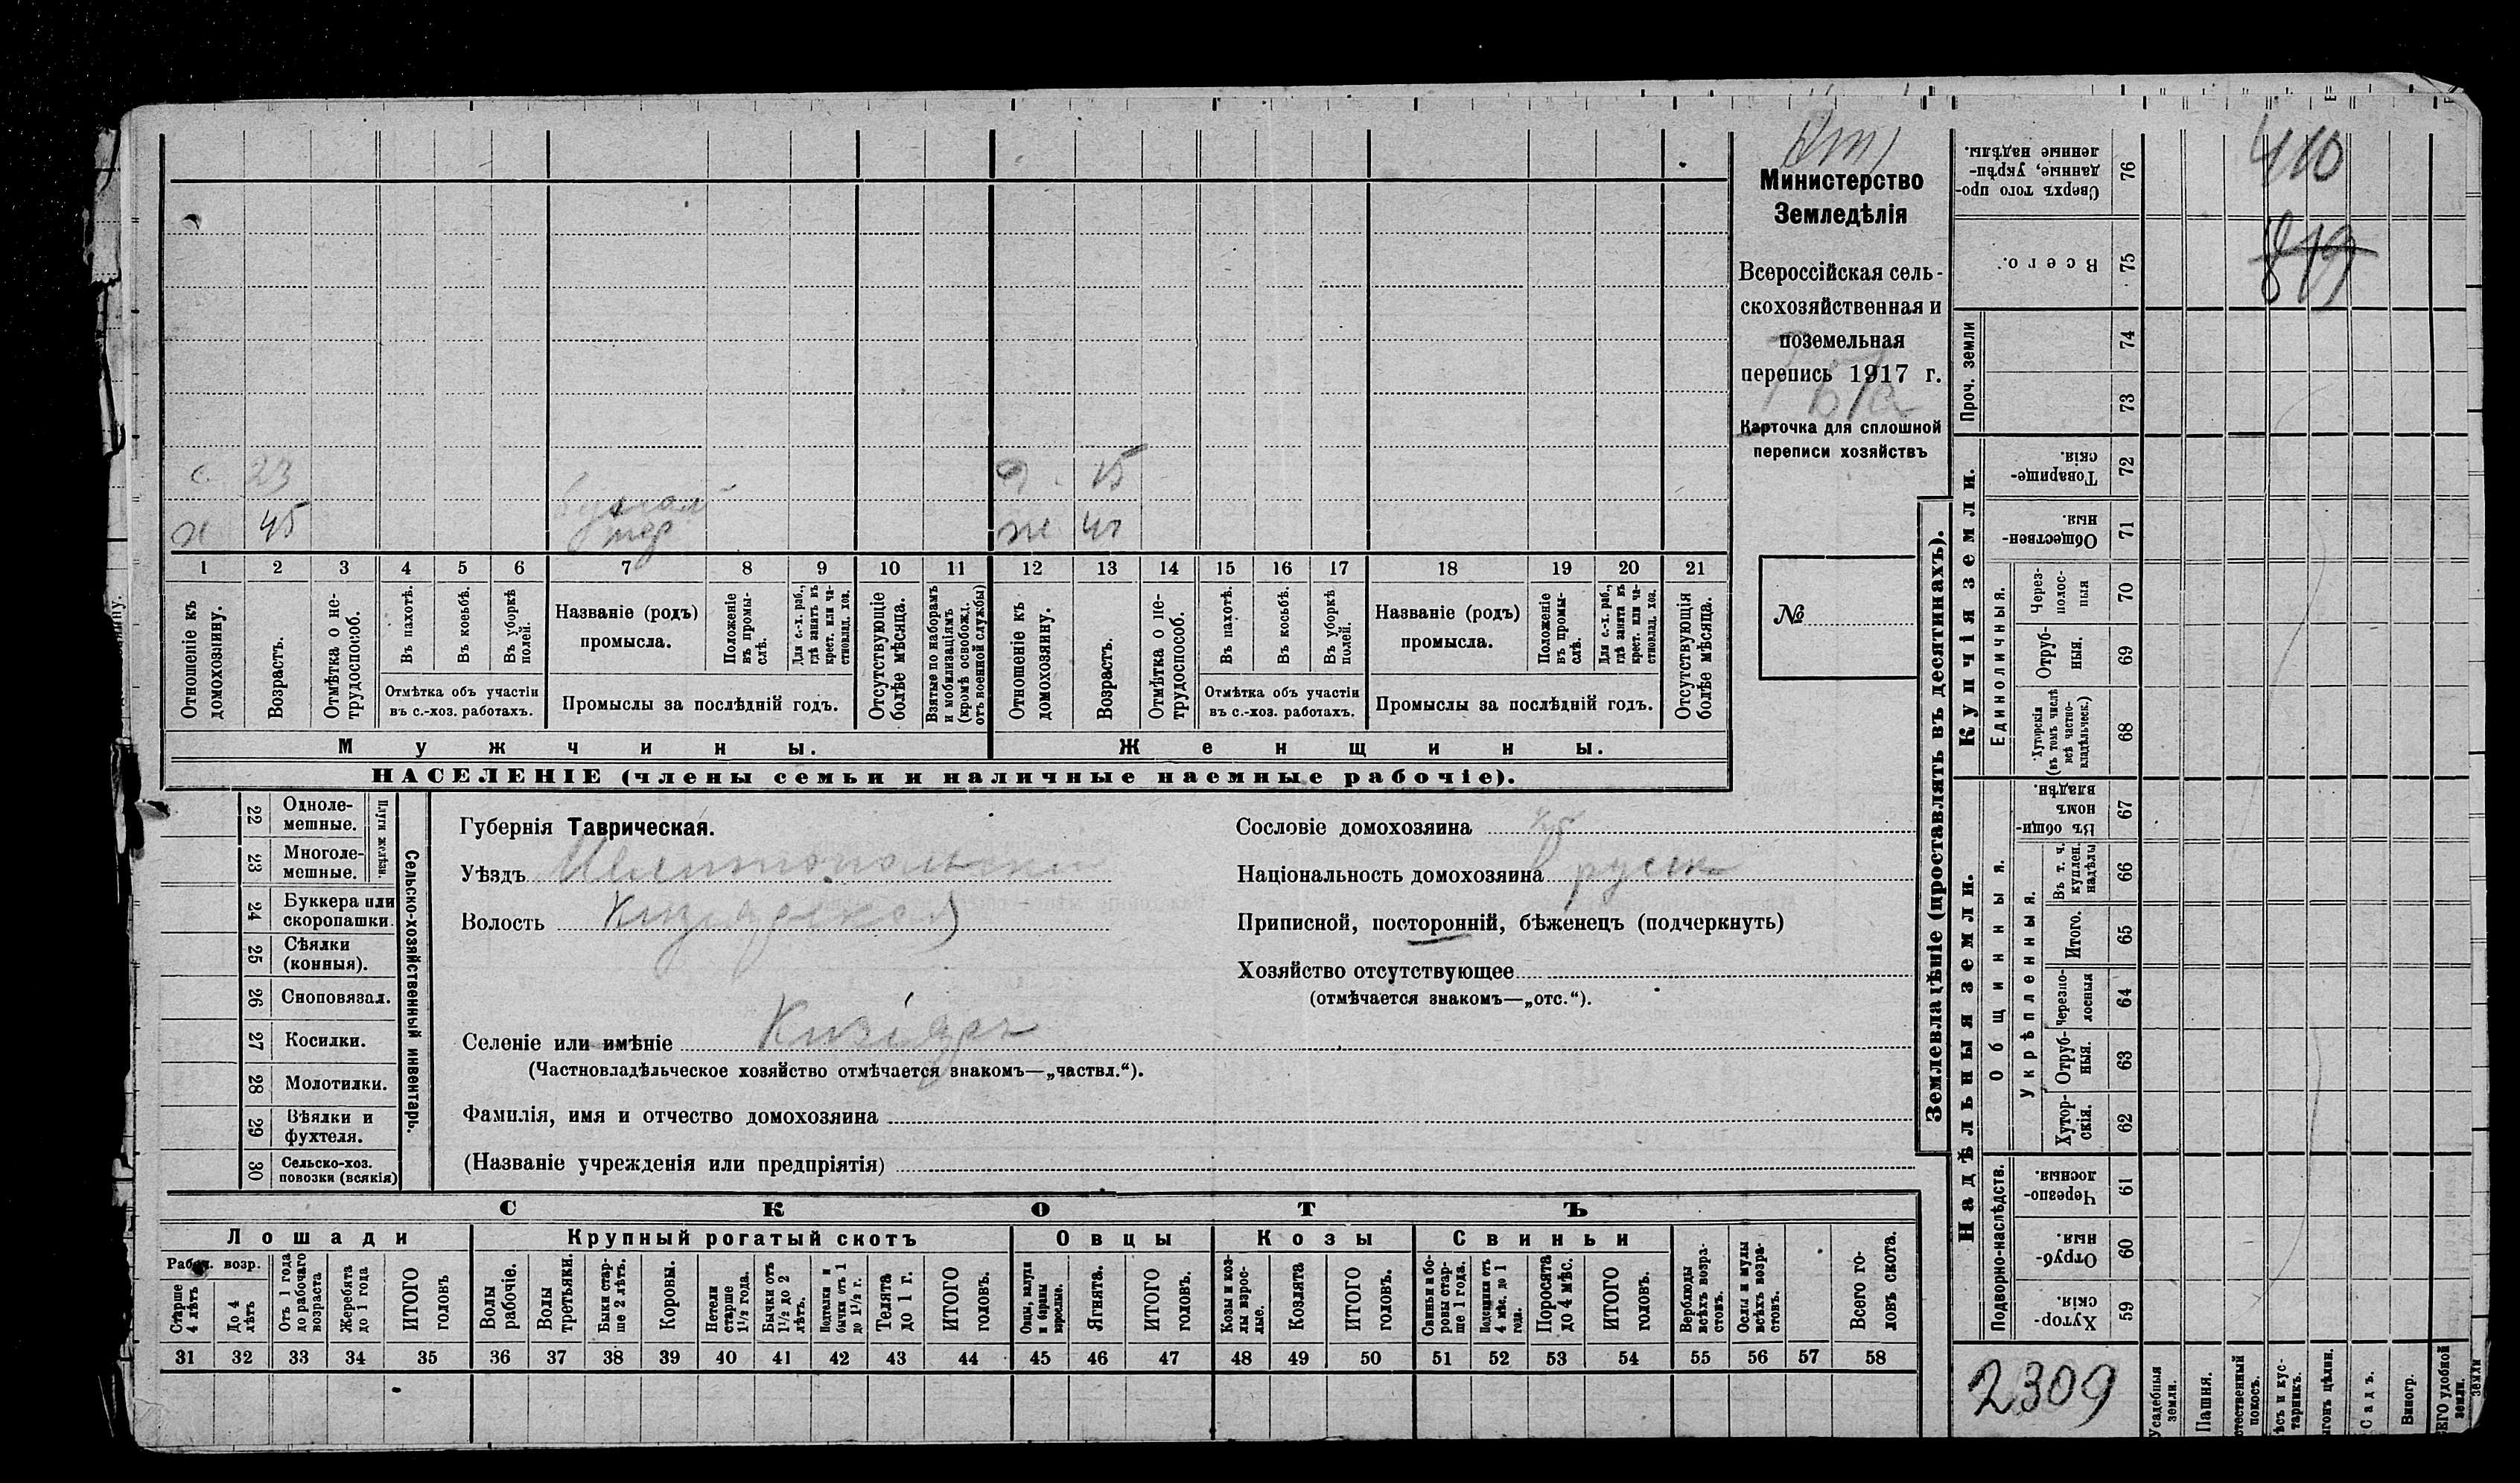 410
819
с. 23
д. 15
н 45
Бухгал
тер
ж 41
1 2 3 4 5 6 7 8 9 10 11 12 13 14 15 16 17 18 19 20 21
Отношеніе къ домохозяину.
Возрастъ.
Отмѣтка о не-
трудоспособ.
Въ пахотѣ.
Въ косьбѣ.
Въ уборкѣ
полей.
Отмѣтка объ участіи
въ с.-хоз. работахъ.
Названіе (родъ)
промысла.
Положеніе
въ промы-
слѣ.
Для с.-х. раб.,
гдѣ занятъ въ
крест. или ча-
стновлад. хоз.
Промыслы за послѣдній годъ.
Отсутствующіе
болѣе мѣсяца.
Взятые по наборамъ
и мобилизаціямъ
(кромѣ освобожд.
отъ военной службы)
Отношеніе къ
домохозяину.
Возрастъ.
Отмѣтка о не-
трудоспособ.
Въ пахотѣ.
Въ косьбѣ.
Въ уборкѣ
полей.
Отмѣтка объ участіи
въ с.-хоз. работахъ.
Названіе (родъ)
промысла.
Положеніе
въ промы-
слѣ.
Для с.-х. раб.,
гдѣ занята въ
крест. или ча-
стновлад. хоз.
Промыслы за послѣдній годъ.
Отсутствующія
болѣе мѣсяца.
Мужчины.
Женщины.
НАСЕЛЕНІЕ (члены семьи и наличные наемные рабочіе).
Министерство
Земледѣлія
Всероссійская сель-
скохозяйственная и
поземельная
перепись 1917 г.
Карточка для сплошной
переписи хозяйствъ
№
22 Одноле-
мешные.
23 Многоле-
мешные.
Плуги желѣзн.
24 Буккера или
скоропашки.
25 Сѣялки
(конныя).
26 Сноповязал.
27 Косилки.
28 Молотилки.
29 Вѣялки и
фухтеля.
30 Сельско-хоз.
повозки (всякія)
Сельско-хозяйственный инвентарь.
Губернія Таврическая.
Уѣздъ Мелитопольскій
Волость Кизіярская
Селеніе или имѣніе Кизіяръ
(Частновладѣльческое хозяйство отмѣчается знакомъ—„частвл.“).
Фамилія, имя и отчество домохозяина
(Названіе учрежденія или предпріятія)
Сословіе домохозяина
Національность домохозяина русск
Приписной, посторонній, бѣженецъ (подчеркнуть)
Хозяйство отсутствующее
(отмѣчается знакомъ—„отс.“).
СКОТЪ
Лошади
Крупный рогатый скотъ
Овцы
Козы
Свиньи
Рабоч. возр.
Старше
4 лѣтъ
До 4
лѣтъ
Отъ 1 года
до рабочаго
возраста
Жеребята
до 1 года
ИТОГО
головъ
Волы
рабочіе.
Волы
третьяки.
Быки стар-
ше 2 лѣтъ.
Коровы.
Нетели
старше
1½ года.
Бычки отъ
1½ до 2
лѣтъ.
Подтелки и
бычки отъ 1
до 1½ г.
Телята
до 1 г.
ИТОГО
головъ.
Овцы, валухи
и бараны
взрослые.
Ягнята.
ИТОГО
головъ.
Козы и коз-
лы взрос-
лые.
Козлята
ИТОГО
головъ.
Свиньи и бо-
ровы стар-
ше 1 года.
Подсвинки отъ
4 мѣс. до 1
года.
Поросята
до 4 мѣс.
ИТОГО
головъ.
Верблюды
всѣхъ возра-
стовъ.
Ослы и мулы
всѣхъ возра-
стовъ.
Всего го-
ловъ скота.
31 32 33 34 35 36 37 38 39 40 41 42 43 44 45 46 47 48 49 50 51 52 53 54 55 56 57 58
Землевладѣніе (проставлять въ десятинахъ).
Надѣльныя земли.
Купчія земли.
Проч. земли
Подворно-наслѣдств.
Общинныя.
Укрѣпленныя.
Единоличныя.
76 Сверхъ того про-
данные, укрѣп-
ленные надѣлы.
75 Всего.
74
73
72 Товарище-
скія.
71 Обществен-
ныя.
70 Через-
полос-
ныя
69 Отруб-
ныя.
68 Хуторскія
(въ томъ числѣ
всѣ частно-
владѣльческ.)
67 Въ общин-
номъ
владѣн.
66 Въ т. ч.
куплен.
надѣлы
65 Итого.
64 Черезпо-
лосныя
63 Отруб-
ныя.
62 Хутор-
скія.
61 Черезпо-
лосныя.
60 Отруб-
ныя.
59 Хутор-
скія.
2309
Усадебныя
земли.
Пашня.
покосъ.
Садъ.
Виногр.
удобной
земли.